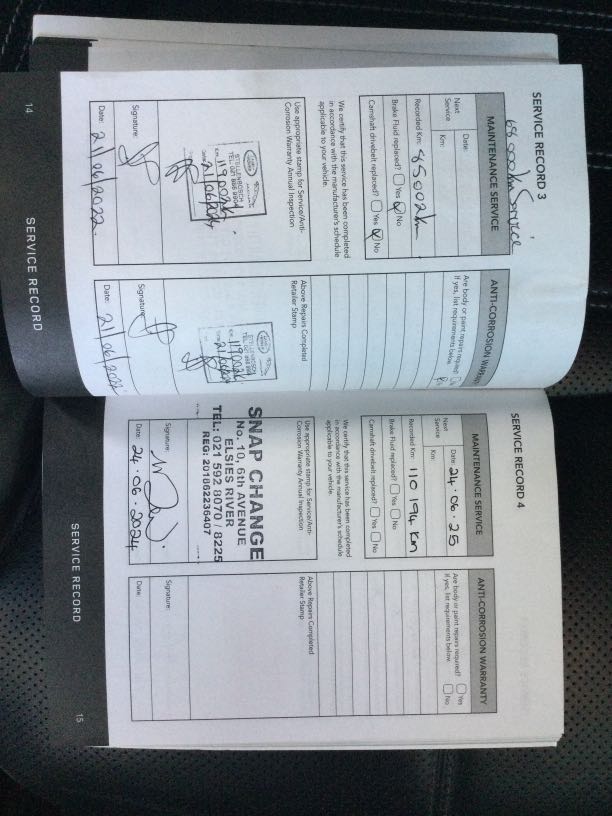 SERVICE RECORD 3
68 000km Service
MAINTENANCE SERVICE
Next Service
Date:
Km:
Recorded Km: 85002km
Brake Fluid replaced? Yes No
Camshaft drivebelt replaced? Yes No
We certify that this service has been completed
in accordance with the manufacturer's schedule
applicable to your vehicle.
Use appropriate stamp for Service/Anti-
Corrosion Warranty Annual Inspection
STELLENBOSCH
Signature:
Date: 21/06/2022.
ANTI-CORROSION WARRANTY
Are body or paint repairs required?
If yes, list requirements below.
Above Repairs Completed
Retailer Stamp
STELLENBOSCH
Signature:
Date: 21/06/
14
SERVICE RECORD
SERVICE RECORD 4
MAINTENANCE SERVICE
Next Service
Date: 24.06.25
Km:
Recorded Km: 110 194 km
Brake Fluid replaced? Yes No
Camshaft drivebelt replaced? Yes No
We certify that this service has been completed
in accordance with the manufacturer's schedule
applicable to your vehicle.
Use appropriate stamp for Service/Anti-
Corrosion Warranty Annual Inspection
SNAP CHANGE
No. 10, 6th AVENUE
ELSIES RIVER
TEL: 021 592 8070 / 8225
REG: 201862236407
Signature:
Date: 24.06.2024
ANTI-CORROSION WARRANTY
Are body or paint repairs required? Yes
If yes, list requirements below. No
Above Repairs Completed
Retailer Stamp
Signature:
Date:
SERVICE RECORD
15